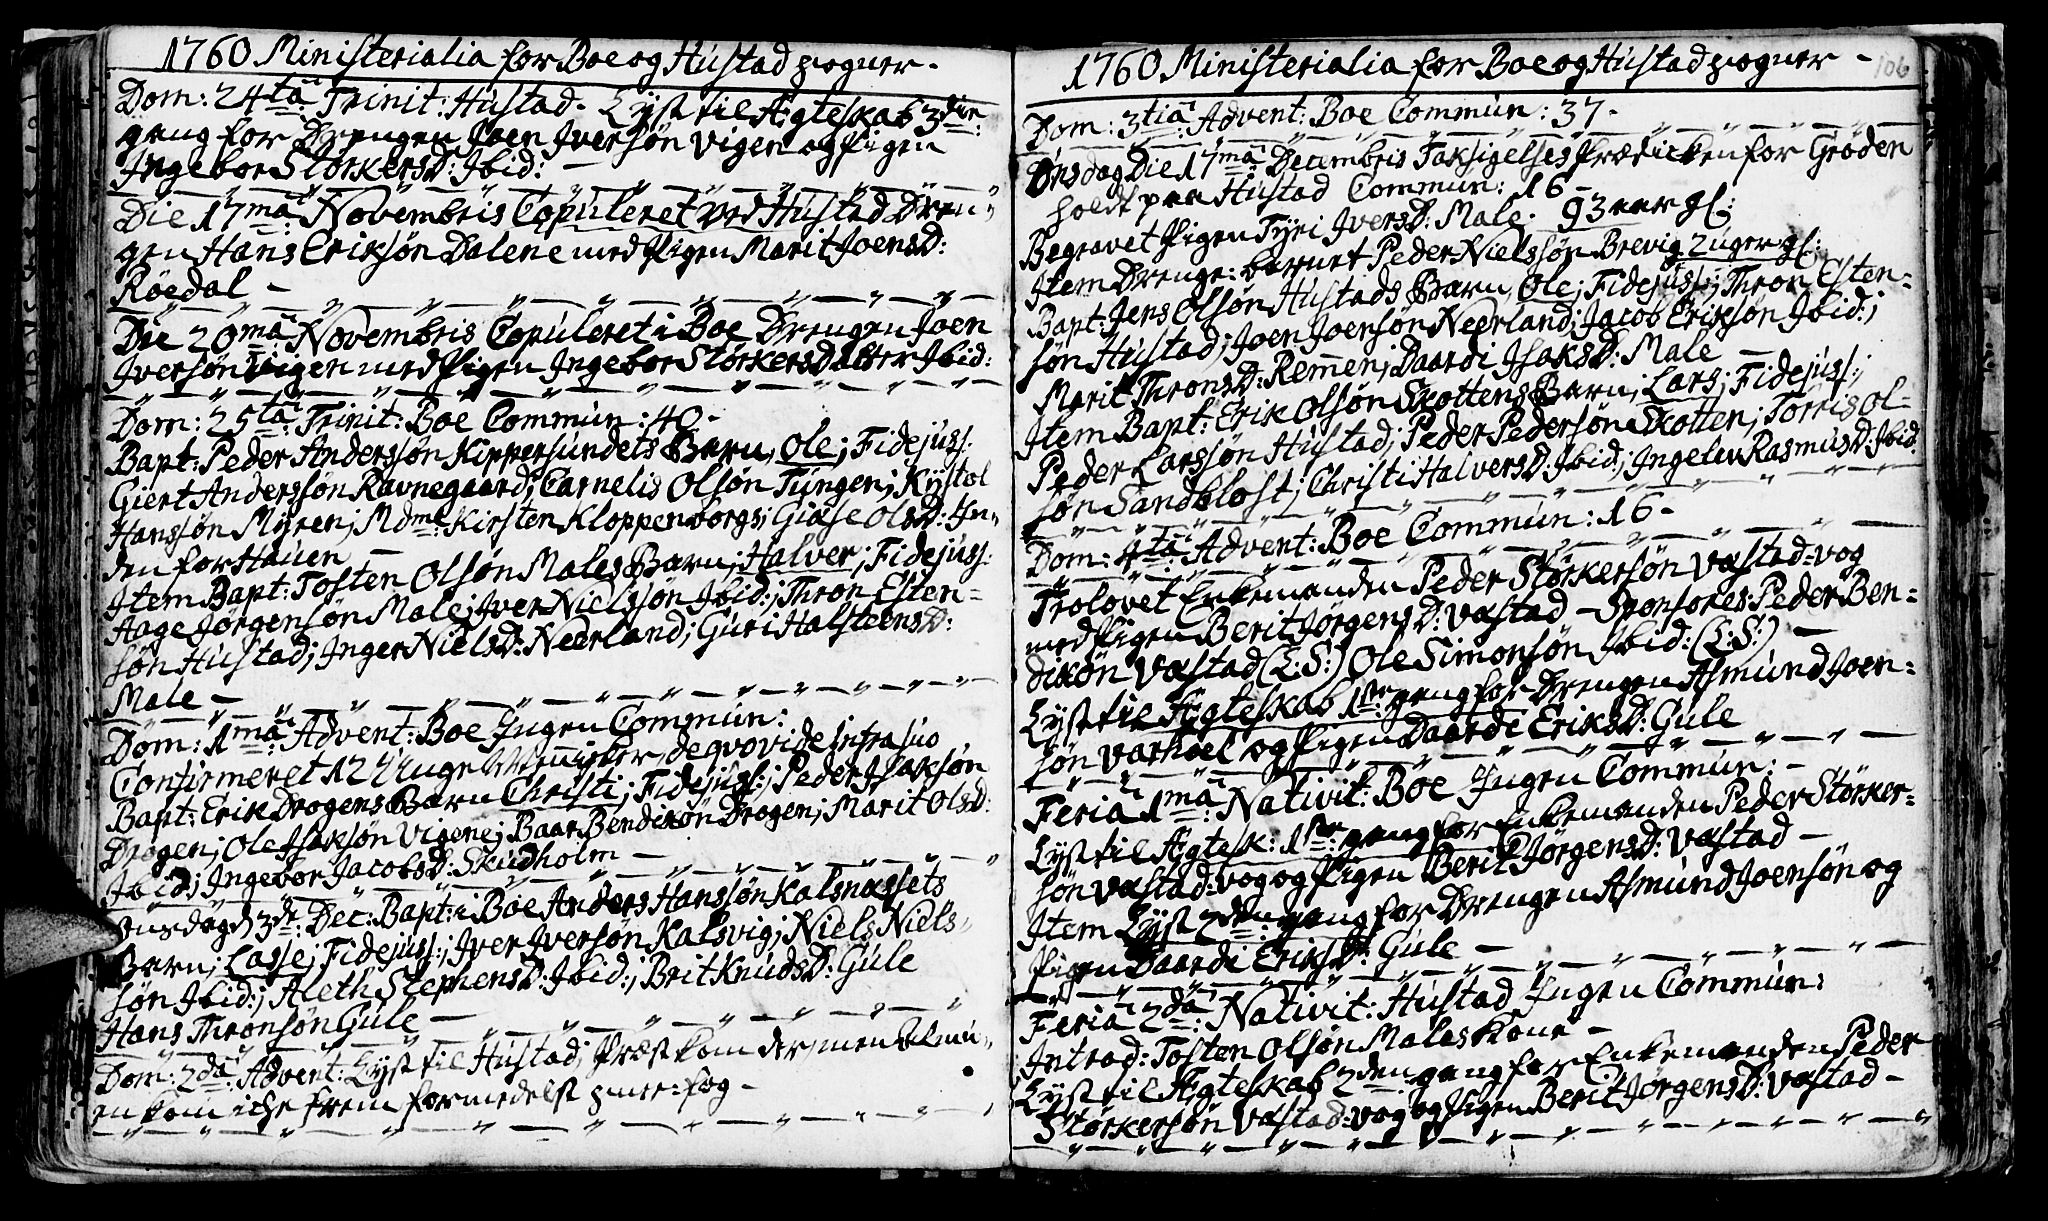 1760 Ministerialia for Boe og Hustad sogner -
Dom: 24ta Trinit: Hustad. Lyst til Ægteskab 3die
gang for Drengen Joen Iversøn Vigen og Pigen
Ingebor StørkersD: Ibid: -
Die 17ma Novembris Copuleret ved Hustad Dren-
gen Hans Eriksøn Dalene med Pigen Marit JoensD:
Røedal -
Die 20ma Novembris Copuleret i Boe Drengen Joen
Iversøn Vigen med Pigen Ingebor StørkersDatter Ibid:
Dom: 25ta Trinit: Boe Commun: 40 -
Bapt: Peder Anderssøn Kippersundets Barn, Ole; Fidejuss:
Giert Anderssøn Ravnegaard; Carnelis Olsøn Tungen; Kystol
Hanssøn Myren; Mdme: Kirsten Kloppenborgs; Giøse OlsD: In-
den for Hauen -
Item Bapt: Tosten Olsøn Males Barn; Halver; Fidejuss:
Aage Jørgensøn Male; Iver Nielssøn Ibid:; Thron Esten=
søn Hustad; Inger NielsD: Neerland; Guri HalsteensD:
Male -
Dom: 1ma Advent: Boe Ingen Commun:
Confirmeret 12 Unge Mennisker, de qvo vide infra suo
Bapt: Erik Drogens Barn Christi; Fidejuss:; Peder Isaksøn
Drogen; Ole Isaksøn Vigene; Baar Bendixøn Drogen; Marit OlsD:
Ibid; Ingebor JacobsD: Skudholm -
Onsdag d 3de Dec: Bapt: i Boe Anders Hanssøn Kalsnæssets
Barn; Lasse; Fidejuss:; Iver Iversøn Kalsvig; Niels Niels-
søn Ibid:; Aleth StephensD: Ibid:; Brit KnudsD: Gule
Hans Thronsøn Gule -
Dom: 2da Advent: Lyst til Hustad; Præst kom der, men Almu-
en kom icke frem formedelst snee-fog -
1760 Ministerialia for Boe og Hustad sogner -
106
Dom: 3tia Advent: Boe Commun: 37 -
Onsdag Die 17ma Decembris Taksigelses Prædicken for Grøden
holdt paa Hustad Commun: 16 -
Begravet Pigen Tyri IversD: Male. 93 aar gl:
Item Drenge-barnet Peder Nielssøn Brevig 2 uger gl:
Bapt: Jens Olsøn Hustads Barn, Ole; Fidejuss:; Thron Esten=
søn Hustad; Joen Joensøn Neerland; Jacob Eriksøn Ibid:;
Marit ThronsD: Remen; Daardi IsaksD: Male -
Item Bapt: Erik Olsøn Skottens Barn; Lars; Fidejuss:;
Peder Larssøn Hustad; Peder Pedersøn Skotten; Torris Ol=
søn Sandblost; Christi HalversD: Ibid:; Ingelev RasmusD: Ibid.
Dom: 4ta Advent: Boe Commun: 16 -
Trolovet Enkemanden Peder Størkersøn Vastad=vog
med Pigen Berit JørgensD: Vastad - Sponsores: Peder Ben=
dixøn Vastad (L:S:) Ole Simonsøn Ibid: (L:S:) -
Lyst til Ægteskab 1ste gang for Drengen Asmund Joen=
søn Varhoel og Pigen Daardi EriksD: Gule
Feria 1ma Nativit: Boe Ingen Commun: -
Lyst til Ægtesk: 1ste gang for Enkemanden Peder Størker=
søn Vastad=vog og Pigen Berit JørgensD: Vastad -
Item Lyst 2den gang for Drengen Asmund Joensøn og
Pigen Daardi EriksD: Gule -
Feria 2da Nativit: Hustad Ingen Commun:
Introd: Tosten Olsøn Males Kone -
Lyst til Ægteskab 2den gang for Enkemanden Peder
Størkersøn Vastad=vog og Pigen Berit JørgensD: Vastad -